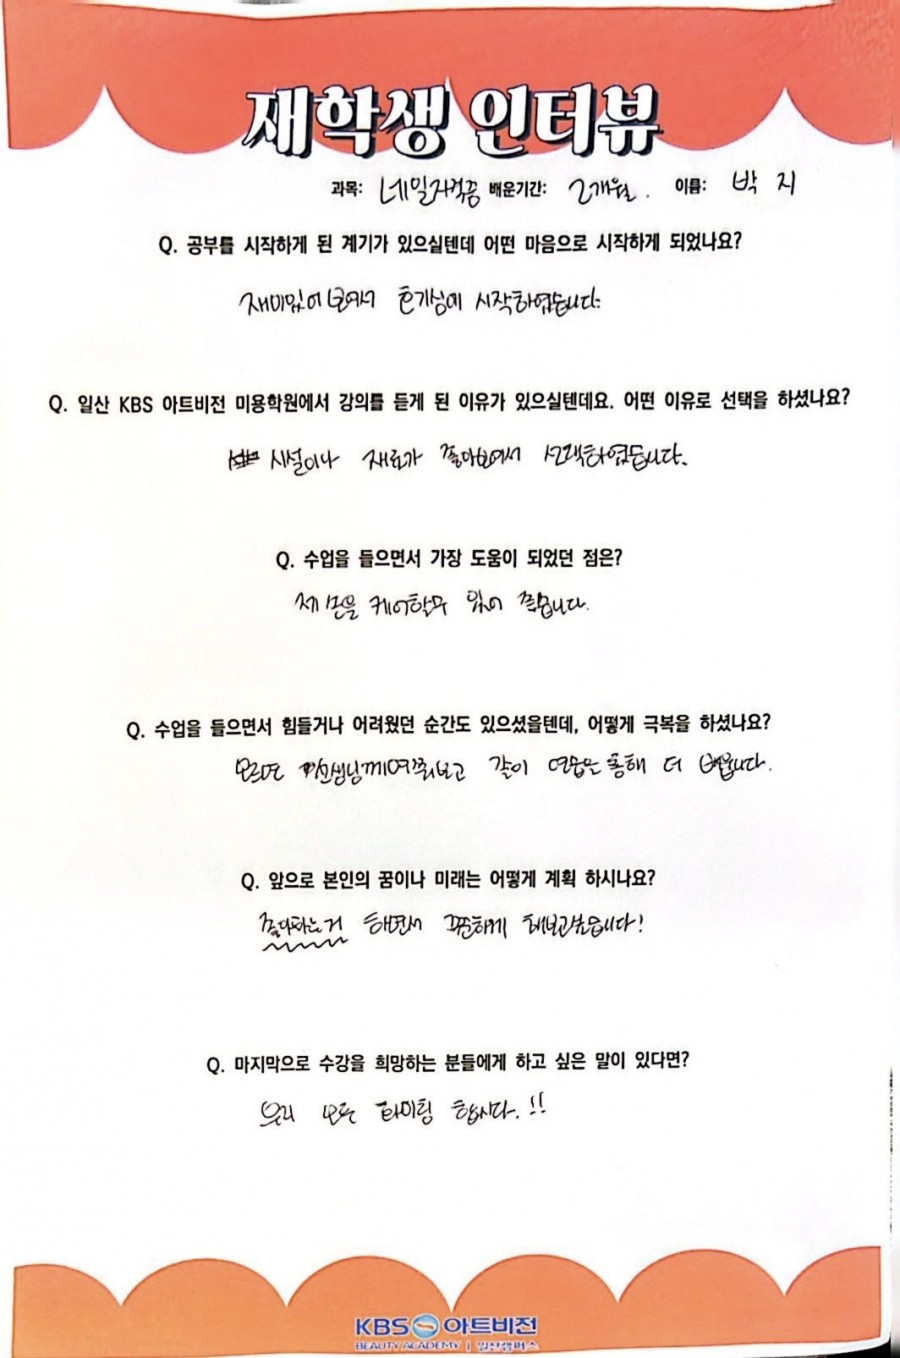 재학생 인터뷰
과목: 네일자격증 배운기간: 2개월. 이름: 박 지
Q. 공부를 시작하게 된 계기가 있으실텐데 어떤 마음으로 시작하게 되었나요?
재미있어 보여서 호기심에 시작하였습니다.
Q. 일산 KBS 아트비전 미용학원에서 강의를 듣게 된 이유가 있으실텐데요. 어떤 이유로 선택을 하셨나요?
시설이나 재료가 좋아보여서 선택하였습니다.
Q. 수업을 들으면서 가장 도움이 되었던 점은?
제 손을 케어할수 있어 좋습니다.
Q. 수업을 들으면서 힘들거나 어려웠던 순간도 있으셨을텐데, 어떻게 극복을 하셨나요?
모르면 선생님께 여쭤보고 같이 연습을 통해 더 배웁니다.
Q. 앞으로 본인의 꿈이나 미래는 어떻게 계획 하시나요?
좋다하는거 하면서 꾸준하게 해보고싶습니다!
Q. 마지막으로 수강을 희망하는 분들에게 하고 싶은 말이 있다면?
우리 모두 파이팅 합시다.!!
KBS 아트비전
BEAUTY ACADEMY | 일산캠퍼스